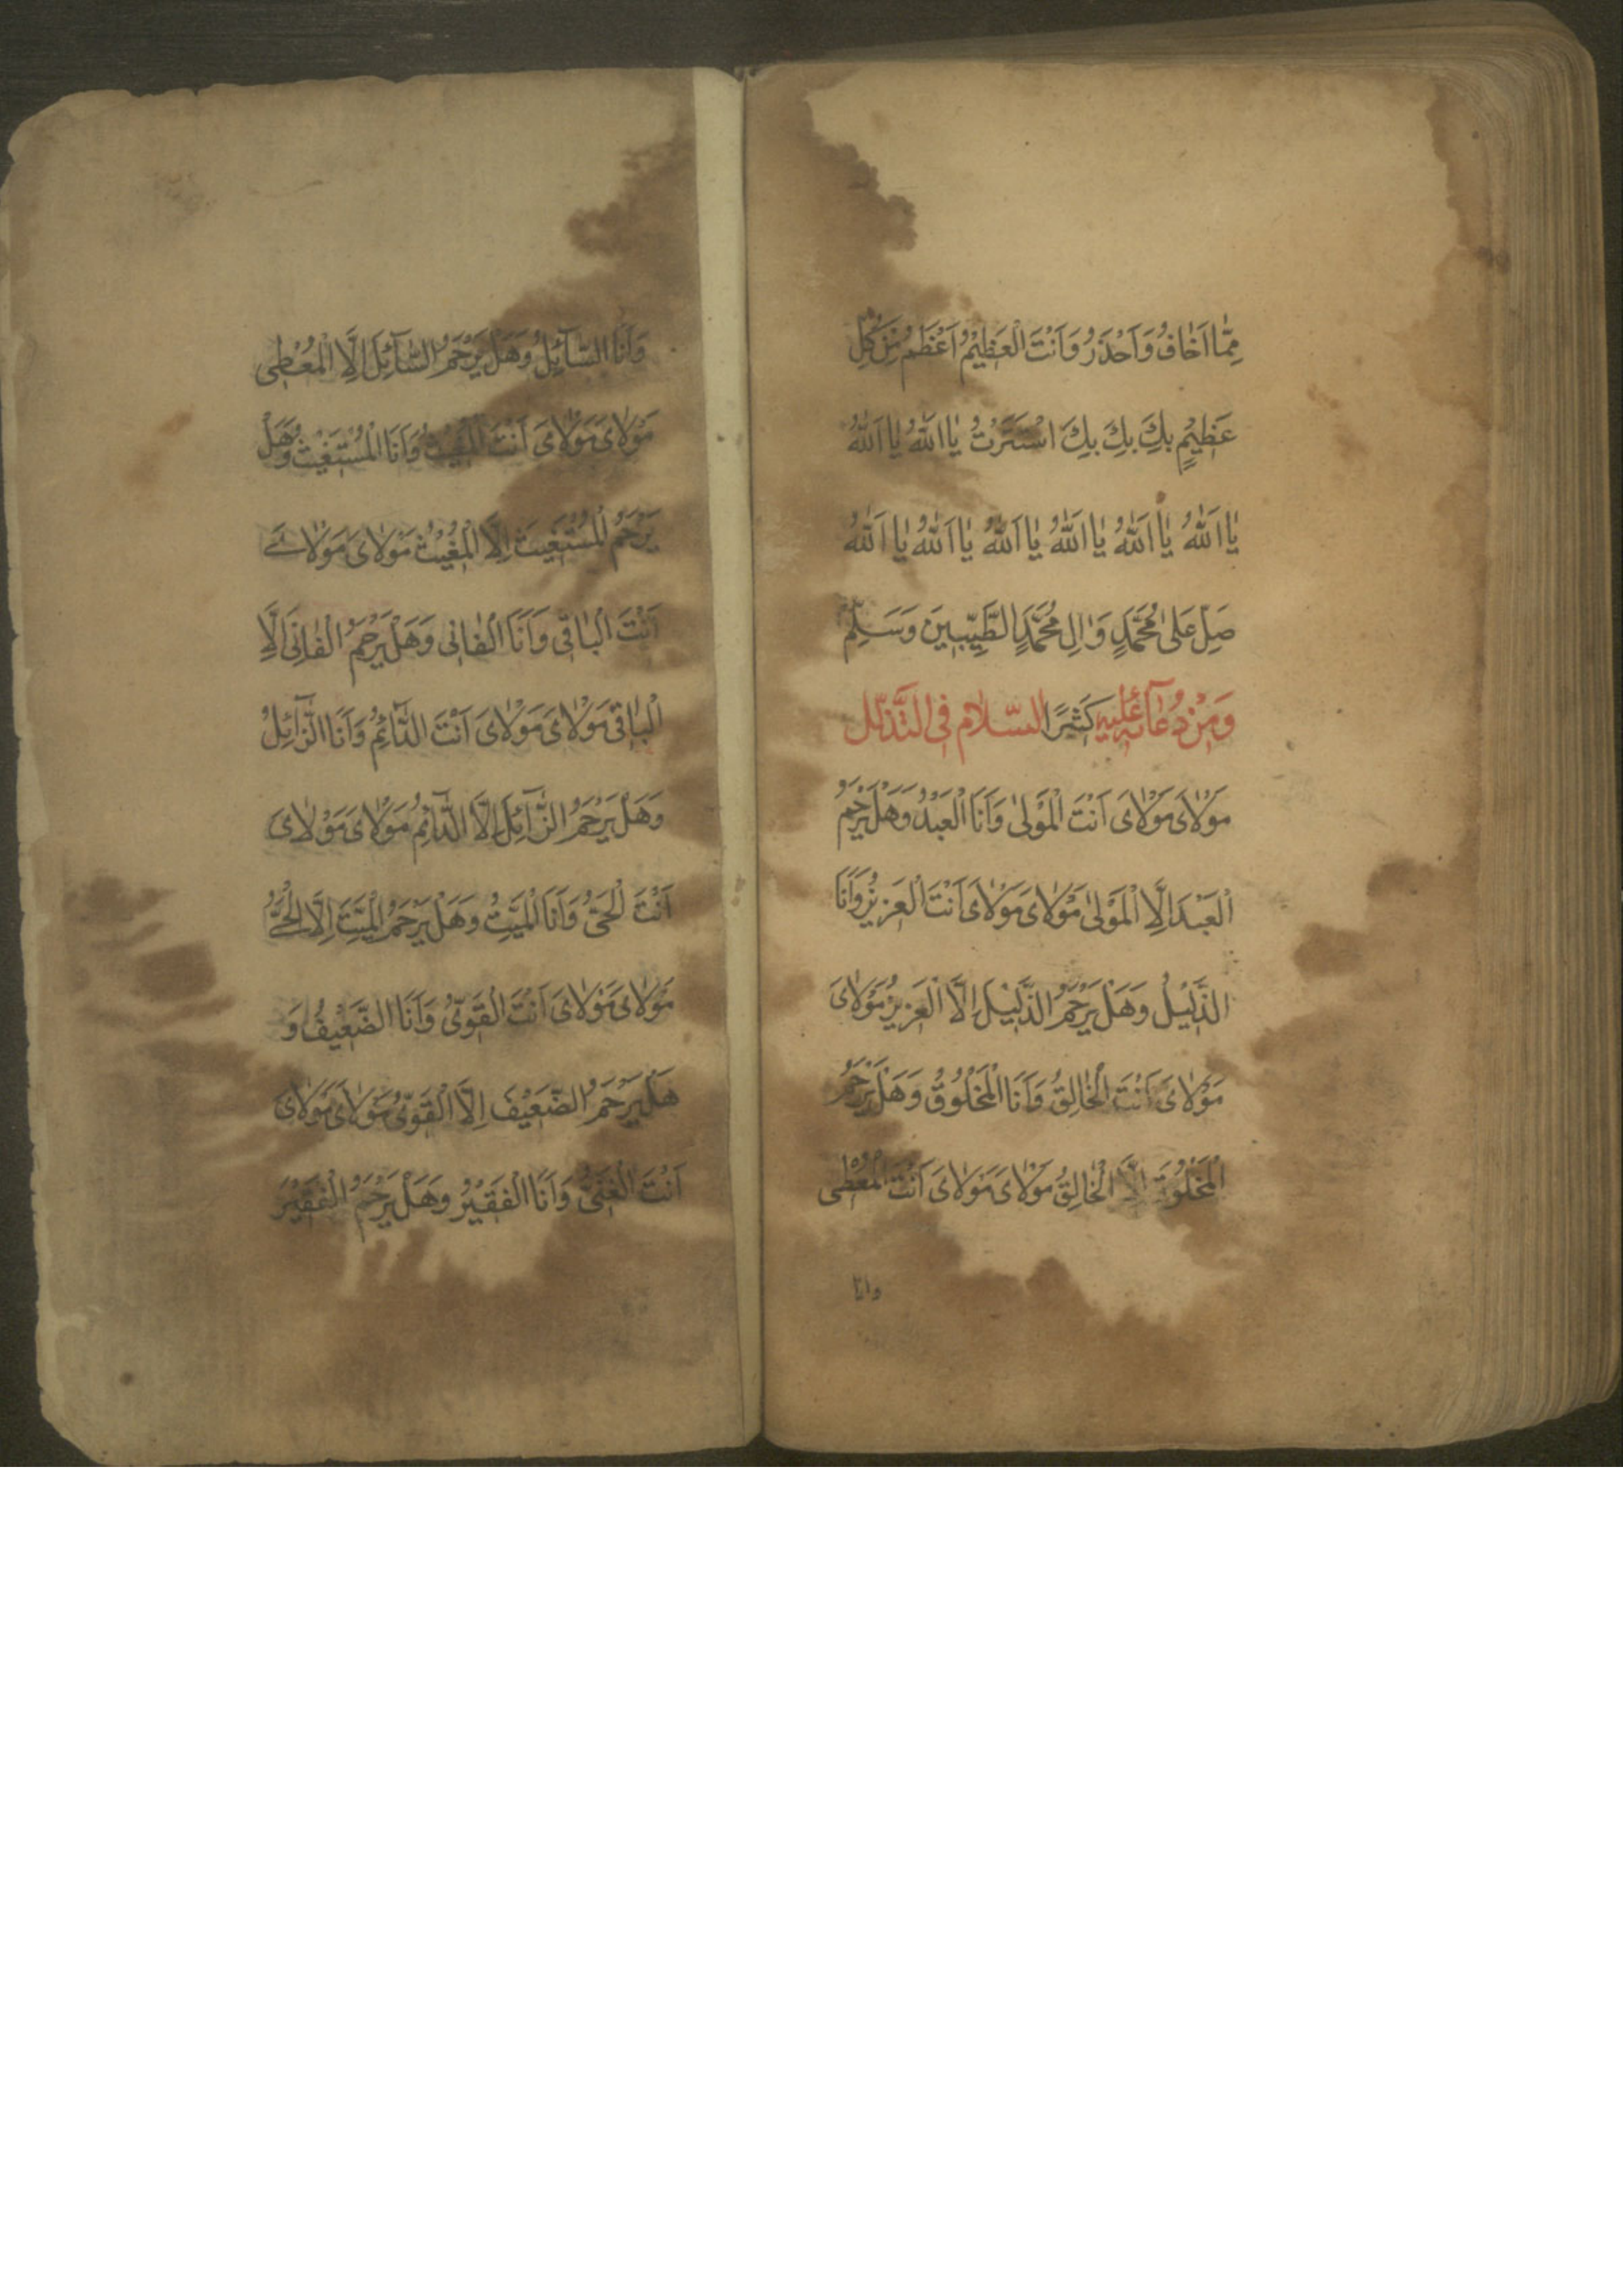 مِمّٰا اَخٰافُ وَاَحْذَرُ وَاَنْتَ الْعَظِيْمُ اَعْظَمُ مِنْ كُلِّ
عَظِيْمٍ بِكَ بِكَ بِكَ اسْتَتَرْتُ يٰا اَللّٰهُ يٰا اَللّٰهُ
يٰا اَللّٰهُ يٰا اَللّٰهُ يٰا اَللّٰهُ يٰا اَللّٰهُ يٰا اَللّٰهُ يٰا اَللّٰهُ
صَلِّ عَلىٰ مُحَمَّدٍ وَاٰلِ مُحَمَّدٍ الطَّيِّبِينَ وَسَلِّمْ
كَثيرًا وَمِنْ دُعٰآئِهِ عَلَيهِ السّلاٰم فِى التَّذَلُّل
مَوْلاٰىَ مَوْلاٰىَ اَنْتَ الْمَوْلىٰ وَاَنَا الْعَبْدُ وَهَلْ يَرْحَمُ
الْعَبْدَ اِلَّا الْمَوْلىٰ مَوْلاٰىَ مَوْلاٰىَ اَنْتَ الْعَزِيزُ وَاَنَا
الذَّلِيْلُ وَهَلْ يَرْحَمُ الذَّلِيْلَ اِلَّا الْعَزِيزُ مَوْلاٰىَ
مَوْلاٰىَ اَنْتَ الْخٰالِقُ وَاَنَا الْمَخْلُوْقُ وَهَلْ يَرْحَمُ
الْمَخْلُوْقَ اِلَّا الْخٰالِقُ مَوْلاٰىَ مَوْلاٰىَ اَنْتَ الْمُعْطِى
وانا
وَاَنَا السّٰآئِلُ وَهَلْ يَرْحَمُ السّٰآئِلَ اِلَّا الْمُعْطِى
مَوْلاٰىَ مَوْلاٰىَ اَنْتَ الْمُغِيْثُ وَاَنَا الْمُسْتَغِيْثُ وَهَلْ
يَرْحَمُ الْمُسْتَغِيْثَ اِلَّا الْمُغِيْثُ مَوْلاٰىَ مَوْلاٰىَ
اَنْتَ الْبٰاقِى وَاَنَا الْفٰانِى وَهَلْ يَرْحَمُ الْفٰانِىَ اِلَّا
الْبٰاقِى مَوْلاٰىَ مَوْلاٰىَ اَنْتَ الدّٰآئِمُ وَاَنَا الزّٰآئِلُ
وَهَلْ يَرْحَمُ الزّٰآئِلَ اِلَّا الدّٰآئِمُ مَوْلاٰىَ مَوْلاٰىَ
اَنْتَ الْحَىُّ وَاَنَا الْمَيِّتُ وَهَلْ يَرْحَمُ الْمَيِّتَ اِلَّا الْحَىُّ
مَوْلاٰىَ مَوْلاٰىَ اَنْتَ الْقَوِىُّ وَاَنَا الضَّعِيْفُ وَ
هَلْ يَرْحَمُ الضَّعِيْفَ اِلَّا الْقَوِىُّ مَوْلاٰىَ مَوْلاٰىَ
اَنْتَ الْغَنِىُّ وَاَنَا الْفَقِيْرُ وَهَلْ يَرْحَمُ الْفَقِيْرَ